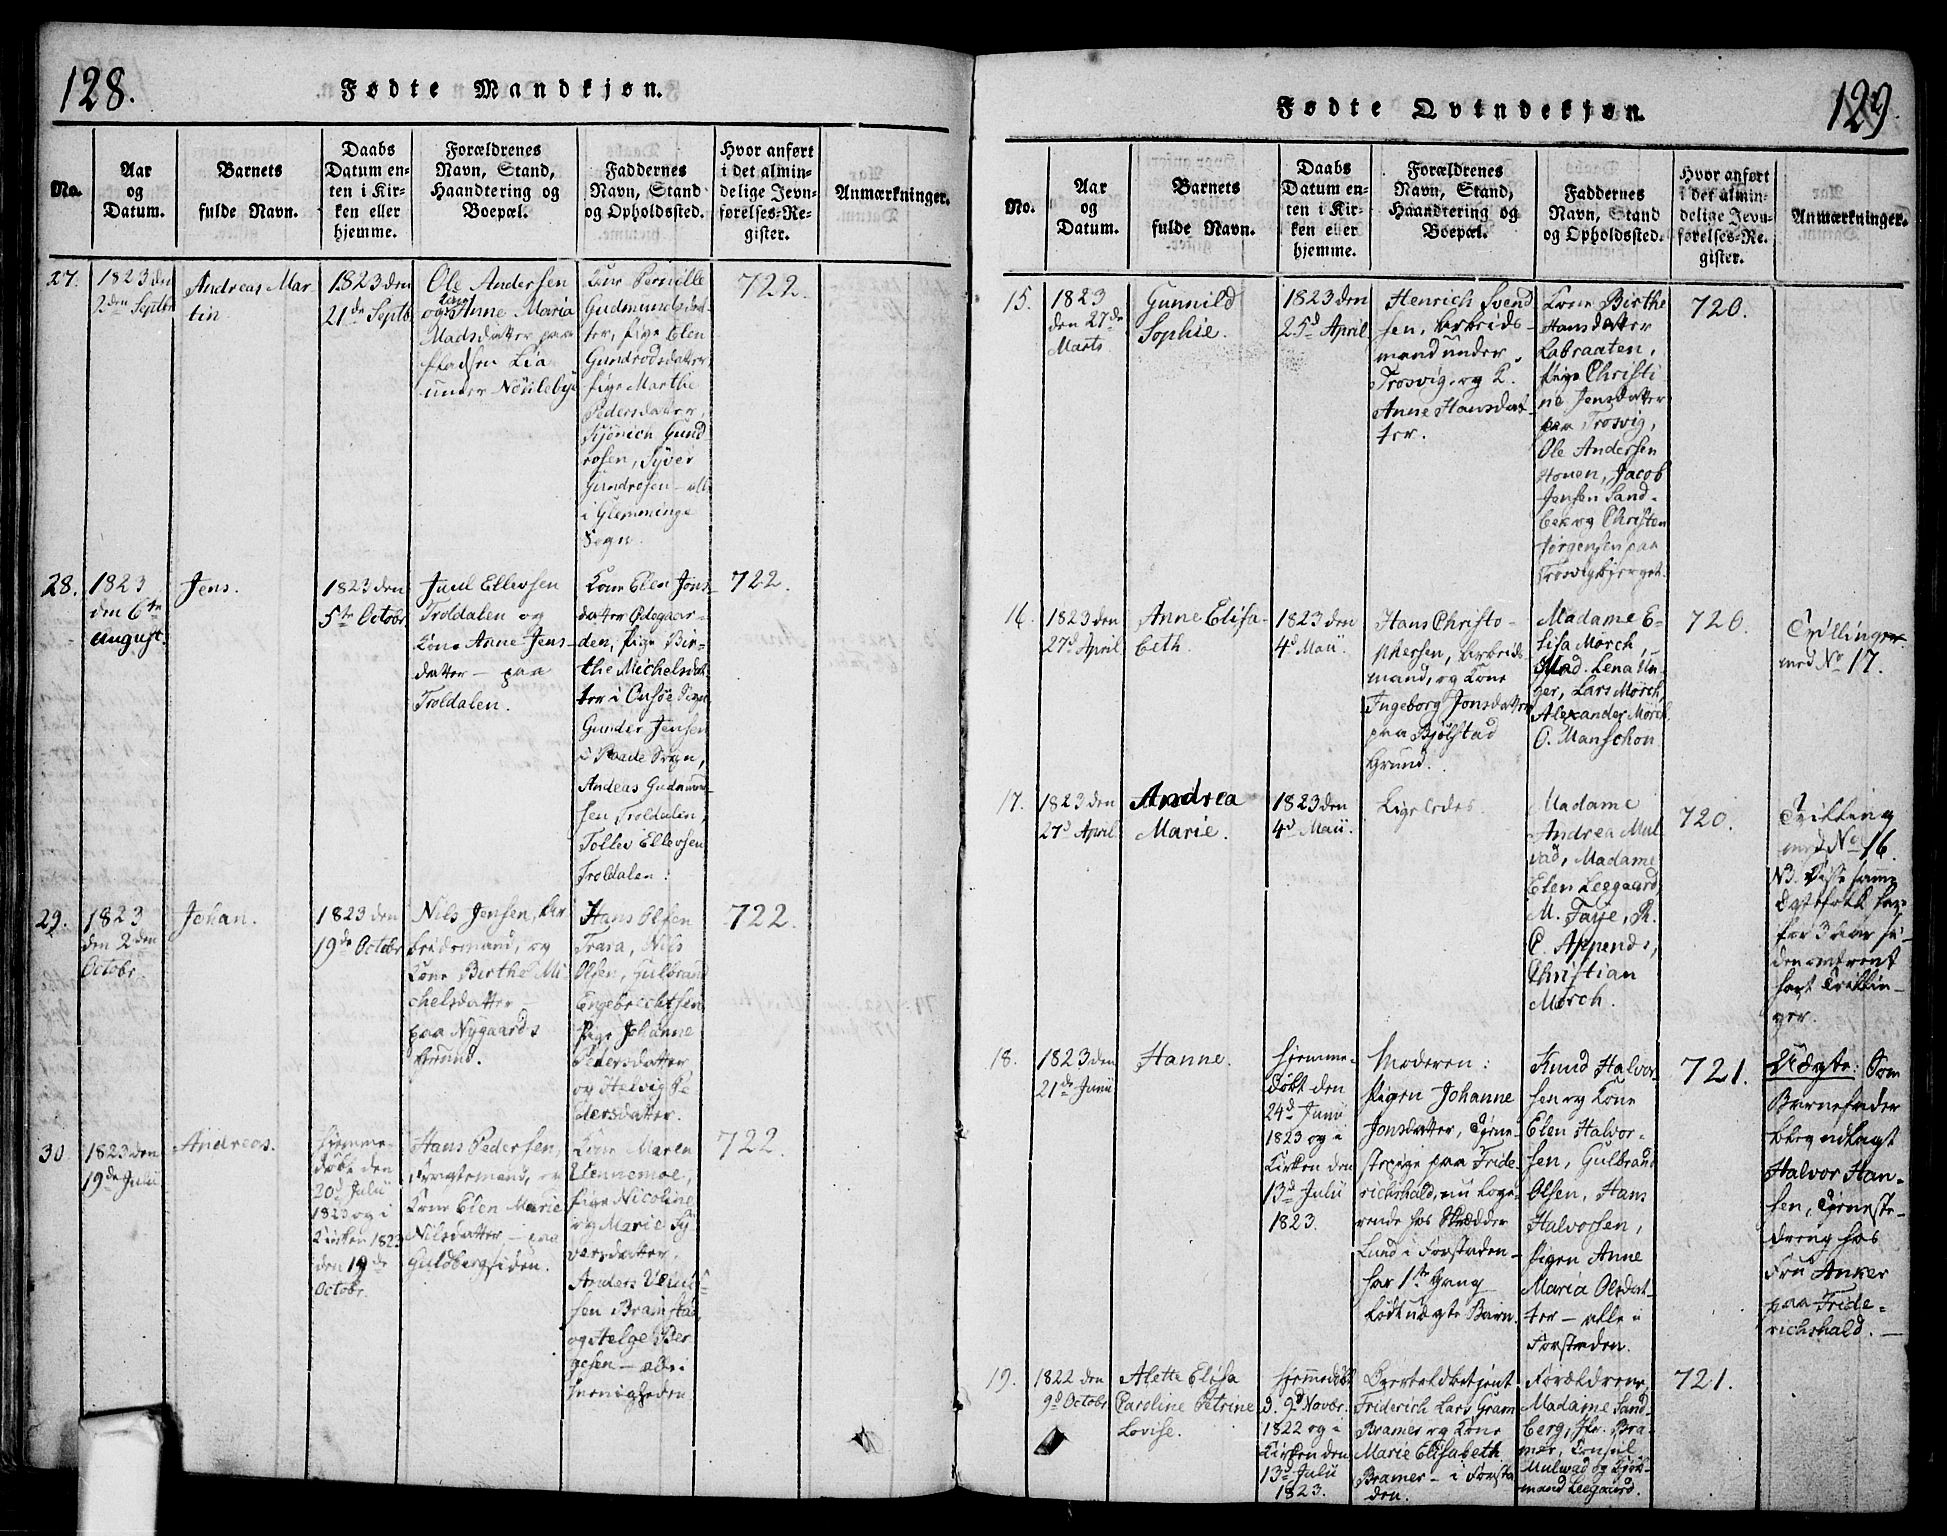 128.
Fødte Mandkjøn.
No.
Aar
og
Datum.
Barnets
fulde Navn.
Daabs
Datum en-
ten i Kir-
ken eller
hjemme.
Forældrenes
Navn, Stand,
Haandtering og
Boepæl.
Faddernes
Navn, Stand
og Opholdssted.
Hvor anført
i det almin-
delige Jevn-
førelses-Re-
gister.
Anmærkninger.
27.
1823 den
2den Septbr
Andreas Mar
tin.
1823 den
21de Septb
Ole Andersen
og Kone Anne Maria
Madsdatter paa
Pladsen Lia
under
Kone Pernille
Gudmundsdat
ter, Pige Elen
Gundrosdatter
Pige Marthe
Pedersdatter,
Gund
rosen, Syver
Gundrosen - alle
i Glemminge
Sogn.
722.
28.
1823
den 6te
August.
Jens.
1823 den
5te Octobr
Juul Ellevsen
Troldalen og
Kone Anne Jens-
datter - paa
Troldalen.
Kone Elen Jons-
datter Ødegaar-
den, Pige Bir-
the Michelsdat
ter i Onsøe Sogn
Gunder Jensen
i Raade Sogn,
Andeas Gudmund
sen Troldalen,
Tollev Ellevsen
Troldalen.
722.
29.
1823
den 2den
Octobr.
Johan.
1823 den
19de Octobr
Nils Jensen, Ar
beidsmand, og
Kone Birthe Mi-
chelsdatter -
paa Nygaards
Grund.
Hans Olsen
Trara, Nils
Olsen, Gulbrand
Engebrechtsen
Pige Johanne
Pedersdatter
og Helvig Pe
dersdatter.
722.
30
1823 den
19de Julii
Andreas.
Hjemme-
døbt den
20d Julii
1823 og i
Kirken 1823
den 19de
Octobr.
Hans Pedersen,
og
Kone Elen Marie
Nilsdatter - paa
Guldbergsiden.
Kone Maren
Vennemoe,
Pige Nicoline
og Marie Sy
versdatter.
Anders
sen
og Helge Ber
gesen - alle i
Menigheden
722.
129.
Fødte Qvindekjøn.
No.
Aar
og
Datum.
Barnets
fulde Navn.
Daabs
Datum en-
ten i Kir-
ken eller
hjemme.
Forældrenes
Navn, Stand,
Haandtering og
Boepæl.
Faddernes
Navn, Stand
og Opholdssted.
Hvor anført
i det almin-
delige Jevn-
førelses-Re-
gister.
Anmærkninger.
15.
1823
den 27de
Marts
Gunnild
Sophie.
1823 den
25d April
Henrich Svend
sen, Arbeids-
mand under
Trosvig, og K.
Anne Hansdat-
ter.
Kone Birthe
Hansdatter
Labraaten,
Pige Christi
ne Jensdatter
paa Trosvig,
Ole Andersen
Houen, Jacob
Jensen Sand-
bek og Christen
Jørgensen paa
Trosvigbjerget.
720.
16.
1823 den
27d April
Anne Elisa-
beth.
1823 den
4d Maii.
Hans Christo-
phersen, Arbeids
mand, og Kone
Ingeborg Jonsdatter
paa Bjølstad
Grund.
Madame E-
lisa Mørch,
Mad. Lena Un-
ger, Lars Mørch,
Alexander Mørch
O. Manschon
720.
Tvillinger
med No 17.
17.
1823 den
27d April
Andrea
Marie.
1823 den
4d Maii.
Ligeledes
Madame
Andrea Mul
vad, Madame
Elen Leegaard,
M. Faye, R.
P. Appends,
Christian
Mørch.
720.
Tvilling
med No 16.
NB. Disse samme
Egtefolk har
for 3 Aar si-
den omtrent
havt Tvillin-
ger.
18.
1823 den
21de Junii
Hanne.
Hjemme-
døbt den
24d Junii
1823 og i
Kirken den
13d Julii
1823.
Moderen:
Pigen Johanne
Jonsdatter, Tjene-
stepige paa Fride-
richshald, nu loge-
rende hos Skrædder
Lund i Forstaden -
har 1te Gang
født uægte Barn.
Knud Halvor-
sen og Kone
Elen Halvor-
sen, Gulbrand
Olsen, Hans
Halvorsen,
Pigen Anne
Maria Olsdat-
ter - alle i
Forstaden.
721.
Uægte: Som
Barnefader
blev udlagt
Halvor Han-
sen, Tjeneste-
dreng hos
Fru Anker
paa Fride-
richshald. -
19.
1822 den
9d Octobr
Alette Elisa
Caroline Petrine
Lovise.
Hjemmedøbt
d. 9d Novbr.
1822 og i
Kirken den
13d Julii
1823.
Overtoldbetjent
Friderich Lars Gram
Bramer og Kone
Marie Elisabeth
Bramer - i Forsta
den.
Forældrene,
Madame Sand-
berg, Hr. Bra-
mer, Consul
Mulvad og Kjøb-
mand Leegaard.
721.